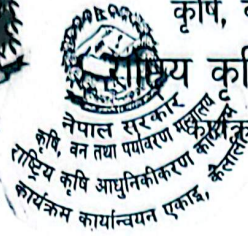 कृषि,
राष्ट्रिय कृ
नेपाल सरकार
कृषि, वन तथा पर्यावरण मन्त्रालय
राष्ट्रिय कृषि आधुनिकीकरण कार्यक्रम
कार्यक्रम कार्यान्वयन एकाइ, कैलाली